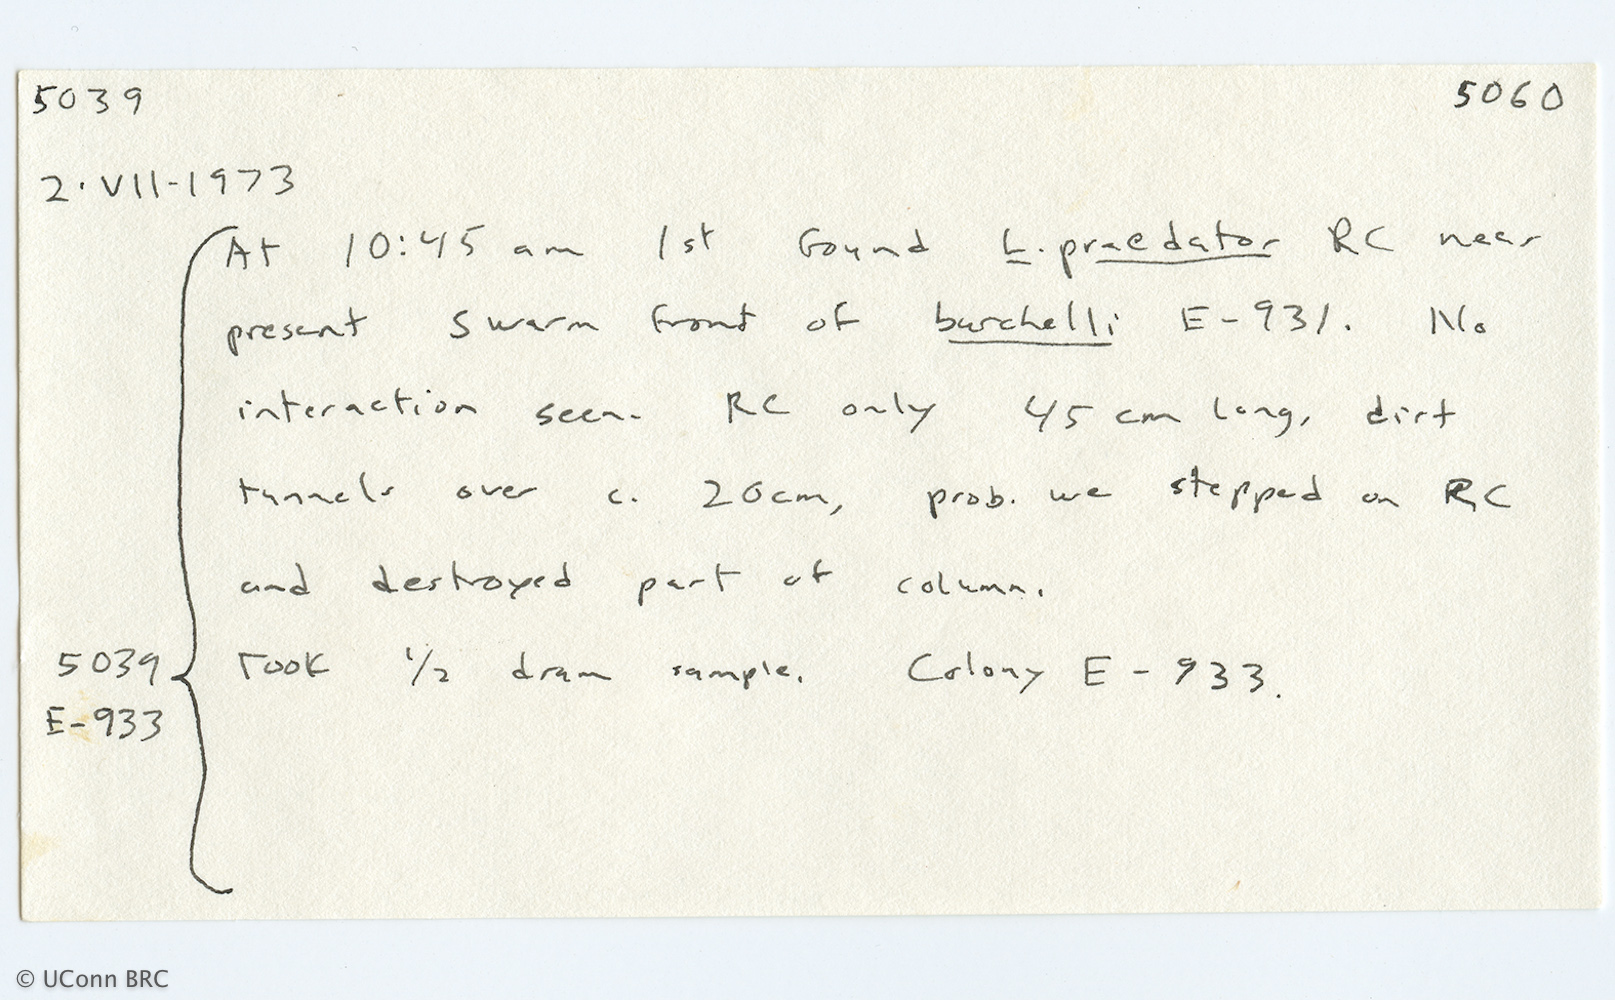 5039 5060
2·VII-1973
At 10:45 am 1st found L. praedator RC near
present swarm front of burchelli E-931. No
interaction seen. RC only 45 cm long, dirt
tunnels over c. 20cm, prob. we stepped on RC
and destroyed part of column.
5039 Took 1/2 dram sample. Colony E-933.
E-933
© UConn BRC